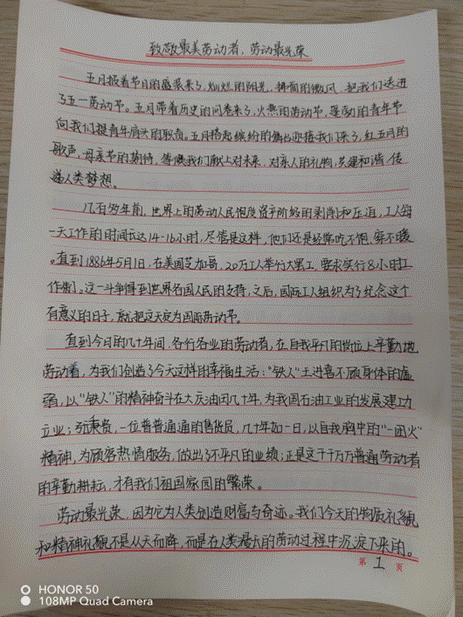 致敬最美劳动者,劳动最光荣
五月披着节日的盛装来了,灿烂的阳光、拂面的微风,把我们送进
了五一劳动节。五月带着历史的问卷来了,火热的劳动节,蓬勃的青年节
向我们提青年肩头的职责。五月搭起缤纷的舞台迎接我们来了,红五月的
歌声,母亲节的期待,等候我们献上对未来、对亲人的礼物,共建和谐,传
递人类梦想。
几百多年前,世界上的劳动人民饱受资产阶级的剥削和压迫,工人每
一天工作的时间长达14-16小时,尽管是这样,他们还是经常吃不饱、穿不暖
。直到1886年5月1日,在美国芝加哥,20万工人举行大罢工,要求实行8小时工
作制。这一斗争得到世界各国人民的支持,之后,国际工人组织为了纪念这个
有意义的日子,就把这天定为国际劳动节。
直到今日的几十年间,各行各业的劳动者,在自我平凡的岗位上辛勤地
劳动着,为我们创造了今天这样的幸福生活:"铁人"王进喜不顾身体的虚
弱,以"铁人"的精神奋斗在大庆油田几十年,为我国石油工业的发展建功
立业;张秉贵,一位普普通通的售货员,几十年如一日,以自我胸中的"一团火"
精神,为顾客热情服务,做出了不平凡的业绩;正是这千千万万普通劳动者
的辛勤耕耘,才有我们祖国家园的繁荣。
劳动最光荣,因为它为人类创造财富与奇迹。我们今天的物质礼貌
和精神礼貌不是从天而降,而是在人类漫长的劳动过程中沉淀下来的。
第 1 页
HONOR 50
108MP Quad Camera